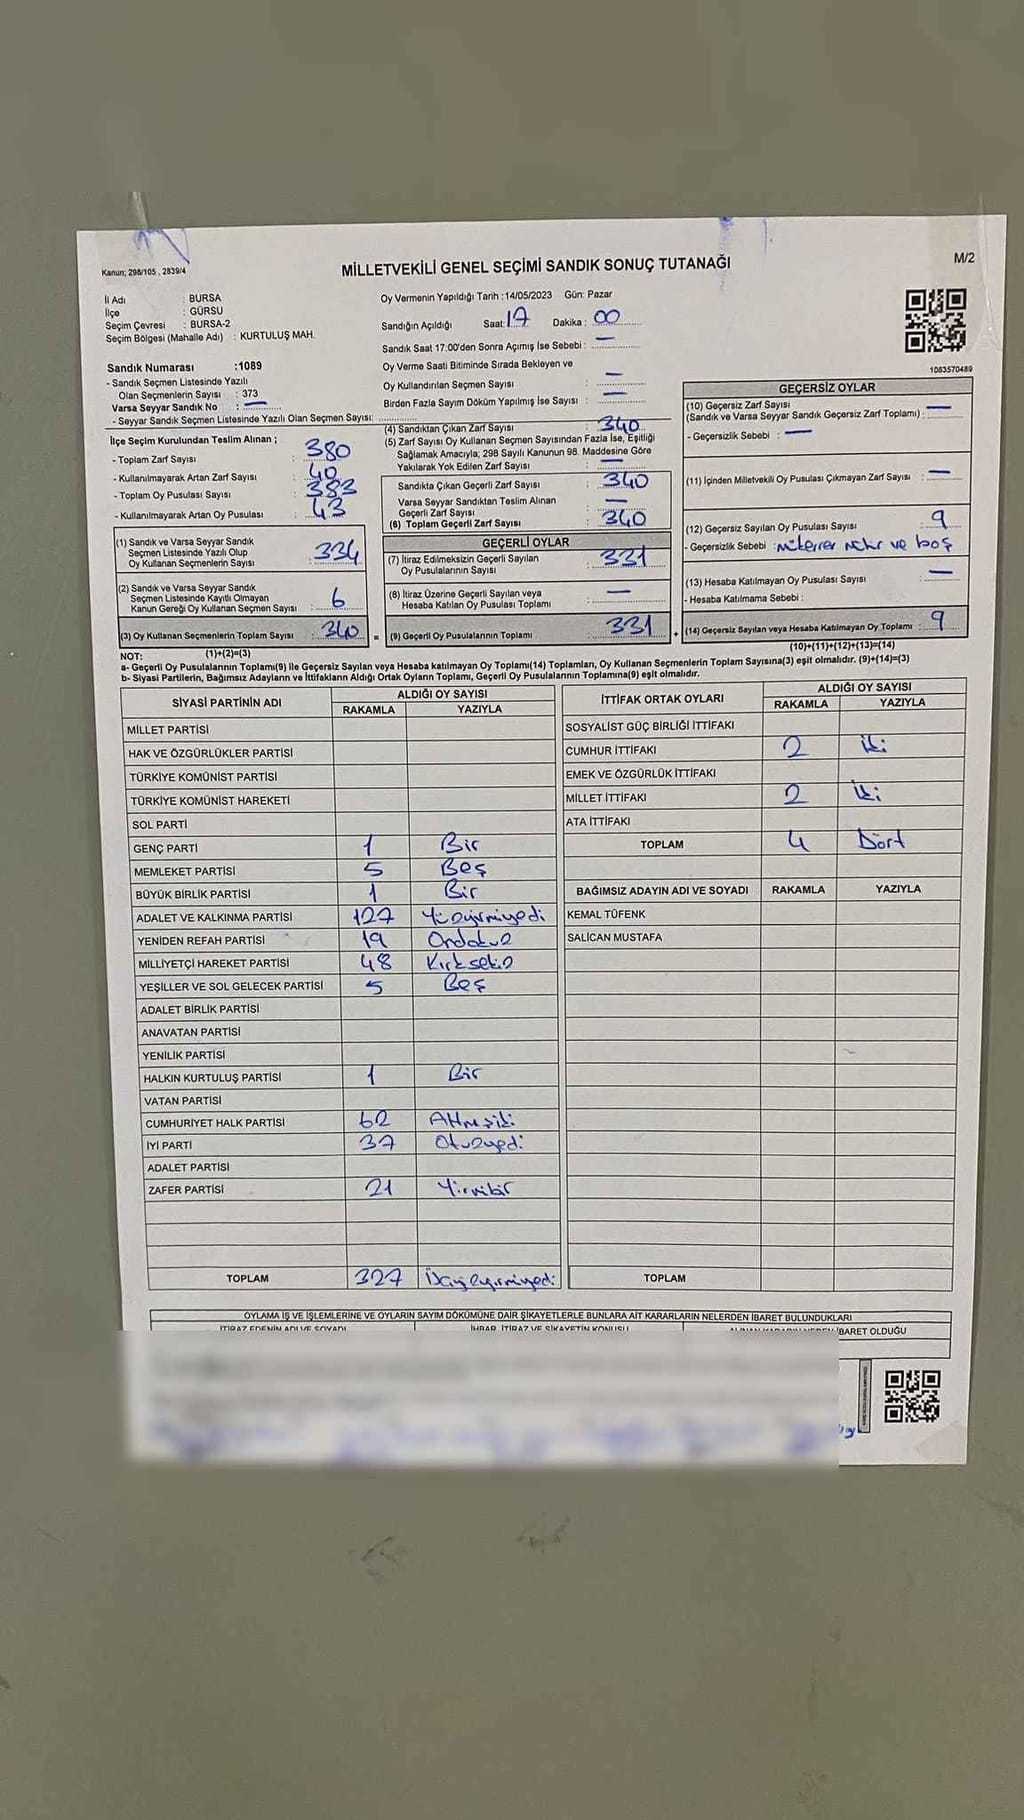 Kanun; 298/105 , 2839/4
MİLLETVEKİLİ GENEL SEÇİMİ SANDIK SONUÇ TUTANAĞI
M/2
İl Adı : BURSA
İlçe : GÜRSU
Seçim Çevresi : BURSA-2
Seçim Bölgesi (Mahalle Adı) : KURTULUŞ MAH.
Oy Vermenin Yapıldığı Tarih :14/05/2023 Gün: Pazar
Sandığın Açıldığı Saat: 17 Dakika : 00
Sandık Saat 17:00'den Sonra Açımış İse Sebebi : —
Oy Verme Saati Bitiminde Sırada Bekleyen ve
Oy Kullandırılan Seçmen Sayısı : —
Birden Fazla Sayım Döküm Yapılmış İse Sayısı : —
1083570489
Sandık Numarası :1089
- Sandık Seçmen Listesinde Yazılı
Olan Seçmenlerin Sayısı : 373
Varsa Seyyar Sandık No : —
- Seyyar Sandık Seçmen Listesinde Yazılı Olan Seçmen Sayısı:
İlçe Seçim Kurulundan Teslim Alınan ;
- Toplam Zarf Sayısı : 380
- Kullanılmayarak Artan Zarf Sayısı : 40
- Toplam Oy Pusulası Sayısı : 383
- Kullanılmayarak Artan Oy Pusulası : 43
(1) Sandık ve Varsa Seyyar Sandık
Seçmen Listesinde Yazılı Olup
Oy Kullanan Seçmenlerin Sayısı : 334
(2) Sandık ve Varsa Seyyar Sandık
Seçmen Listesinde Kayıtlı Olmayan
Kanun Gereği Oy Kullanan Seçmen Sayısı : 6
(3) Oy Kullanan Seçmenlerin Toplam Sayısı : 340 =
(4) Sandıktan Çıkan Zarf Sayısı : 340
(5) Zarf Sayısı Oy Kullanan Seçmen Sayısından Fazla İse, Eşitliği
Sağlamak Amacıyla, 298 Sayılı Kanunun 98. Maddesine Göre
Yakılarak Yok Edilen Zarf Sayısı : —
Sandıkta Çıkan Geçerli Zarf Sayısı : 340
Varsa Seyyar Sandıktan Teslim Alınan
Geçerli Zarf Sayısı : —
(6) Toplam Geçerli Zarf Sayısı : 340
GEÇERLİ OYLAR
(7) İtiraz Edilmeksizin Geçerli Sayılan
Oy Pusulalarının Sayısı : 331
(8) İtiraz Üzerine Geçerli Sayılan veya
Hesaba Katılan Oy Pusulası Toplamı : —
(9) Geçerli Oy Pusulalarının Toplamı : 331 +
GEÇERSİZ OYLAR
(10) Geçersiz Zarf Sayısı : —
(Sandık ve Varsa Seyyar Sandık Geçersiz Zarf Toplamı)
- Geçersizlik Sebebi : —
(11) İçinden Milletvekili Oy Pusulası Çıkmayan Zarf Sayısı : —
(12) Geçersiz Sayılan Oy Pusulası Sayısı : 9
- Geçersizlik Sebebi : mükerrer mühr ve boş
(13) Hesaba Katılmayan Oy Pusulası Sayısı : —
- Hesaba Katılmama Sebebi :
(14) Geçersiz Sayılan veya Hesaba Katılmayan Oy Toplamı : 9
NOT: (1)+(2)=(3)
(10)+(11)+(12)+(13)=(14)
a- Geçerli Oy Pusulalarının Toplamı(9) ile Geçersiz Sayılan veya Hesaba katılmayan Oy Toplamı(14) Toplamları, Oy Kullanan Seçmenlerin Toplam Sayısına(3) eşit olmalıdır. (9)+(14)=(3)
b- Siyasi Partilerin, Bağımsız Adayların ve İttifakların Aldığı Ortak Oyların Toplamı, Geçerli Oy Pusulalarının Toplamına(9) eşit olmalıdır.
SİYASİ PARTİNİN ADI ALDIĞI OY SAYISI
RAKAMLA YAZIYLA
MİLLET PARTİSİ
HAK VE ÖZGÜRLÜKLER PARTİSİ
TÜRKİYE KOMÜNİST PARTİSİ
TÜRKİYE KOMÜNİST HAREKETİ
SOL PARTİ
GENÇ PARTİ 1 Bir
MEMLEKET PARTİSİ 5 Beş
BÜYÜK BİRLİK PARTİSİ 1 Bir
ADALET VE KALKINMA PARTİSİ 127 Yüzyirmiyedi
YENİDEN REFAH PARTİSİ 19 Ondokuz
MİLLİYETÇİ HAREKET PARTİSİ 48 Kırksekiz
YEŞİLLER VE SOL GELECEK PARTİSİ 5 Beş
ADALET BİRLİK PARTİSİ
ANAVATAN PARTİSİ
YENİLİK PARTİSİ
HALKIN KURTULUŞ PARTİSİ 1 Bir
VATAN PARTİSİ
CUMHURİYET HALK PARTİSİ 62 Altmışiki
İYİ PARTİ 37 Otuzyedi
ADALET PARTİSİ
ZAFER PARTİSİ 21 Yirmibir
TOPLAM 327 Üçyüzyirmiyedi
İTTİFAK ORTAK OYLARI ALDIĞI OY SAYISI
RAKAMLA YAZIYLA
SOSYALİST GÜÇ BİRLİĞİ İTTİFAKI
CUMHUR İTTİFAKI 2 İki
EMEK VE ÖZGÜRLÜK İTTİFAKI
MİLLET İTTİFAKI 2 İki
ATA İTTİFAKI
TOPLAM 4 Dört
BAĞIMSIZ ADAYIN ADI VE SOYADI RAKAMLA YAZIYLA
KEMAL TÜFENK
SALİCAN MUSTAFA
TOPLAM
OYLAMA İŞ VE İŞLEMLERİNE VE OYLARIN SAYIM DÖKÜMÜNE DAİR ŞİKAYETLERLE BUNLARA AİT KARARLARIN NELERDEN İBARET BULUNDUKLARI
İTİRAZ EDENİN ADI VE SOYADI İHBAR, İTİRAZ VE ŞİKAYETİN KONUSU İBARET OLDUĞU